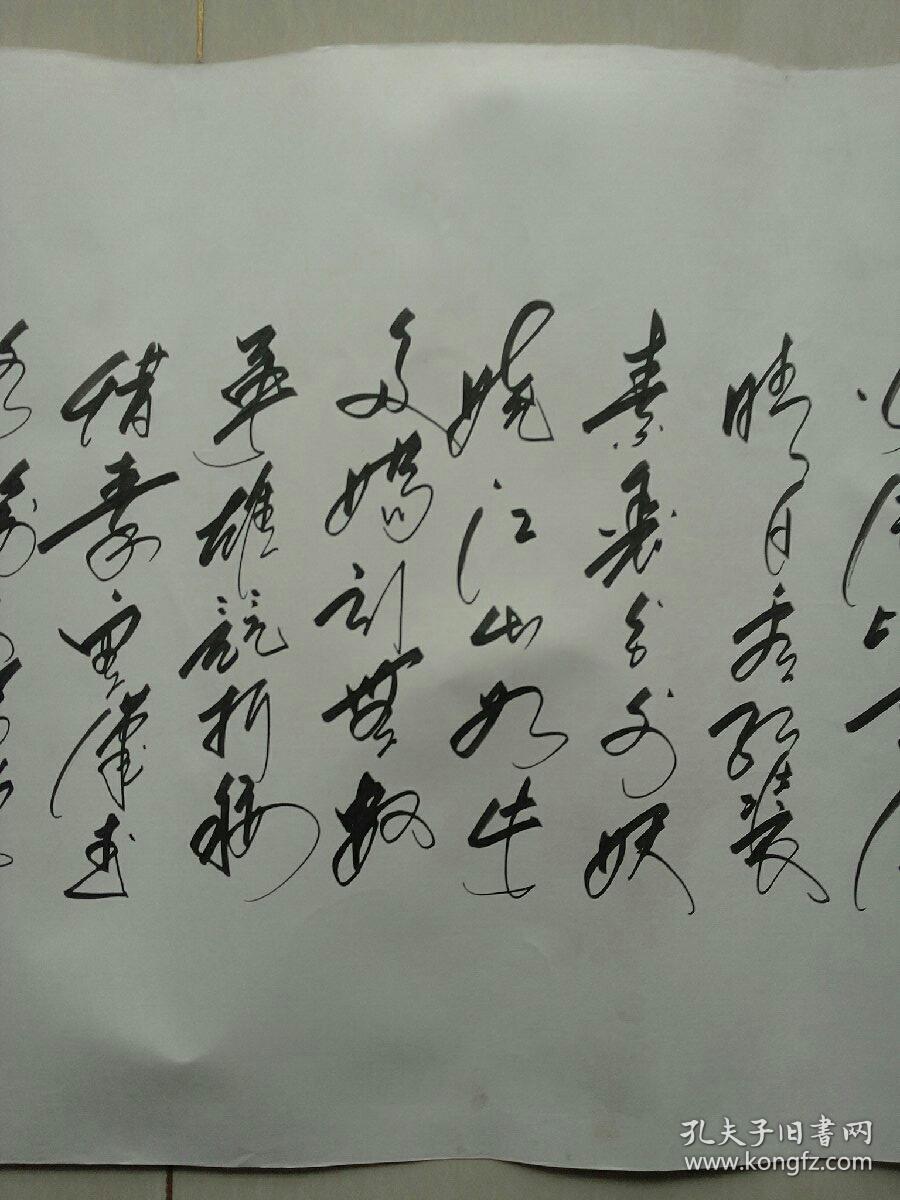 晴日看红装
素裹分外妖
娆江山如此
多嬌引無数
英雄競折腰
惜秦皇漢武
孔夫子旧书网
www.kongfz.com